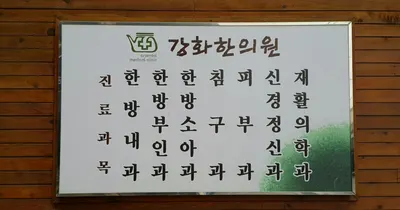 강화한의원
진료과목
한방내과
한방부인과
한방소아과
침구과
피부과
신경정신과
재활의학과